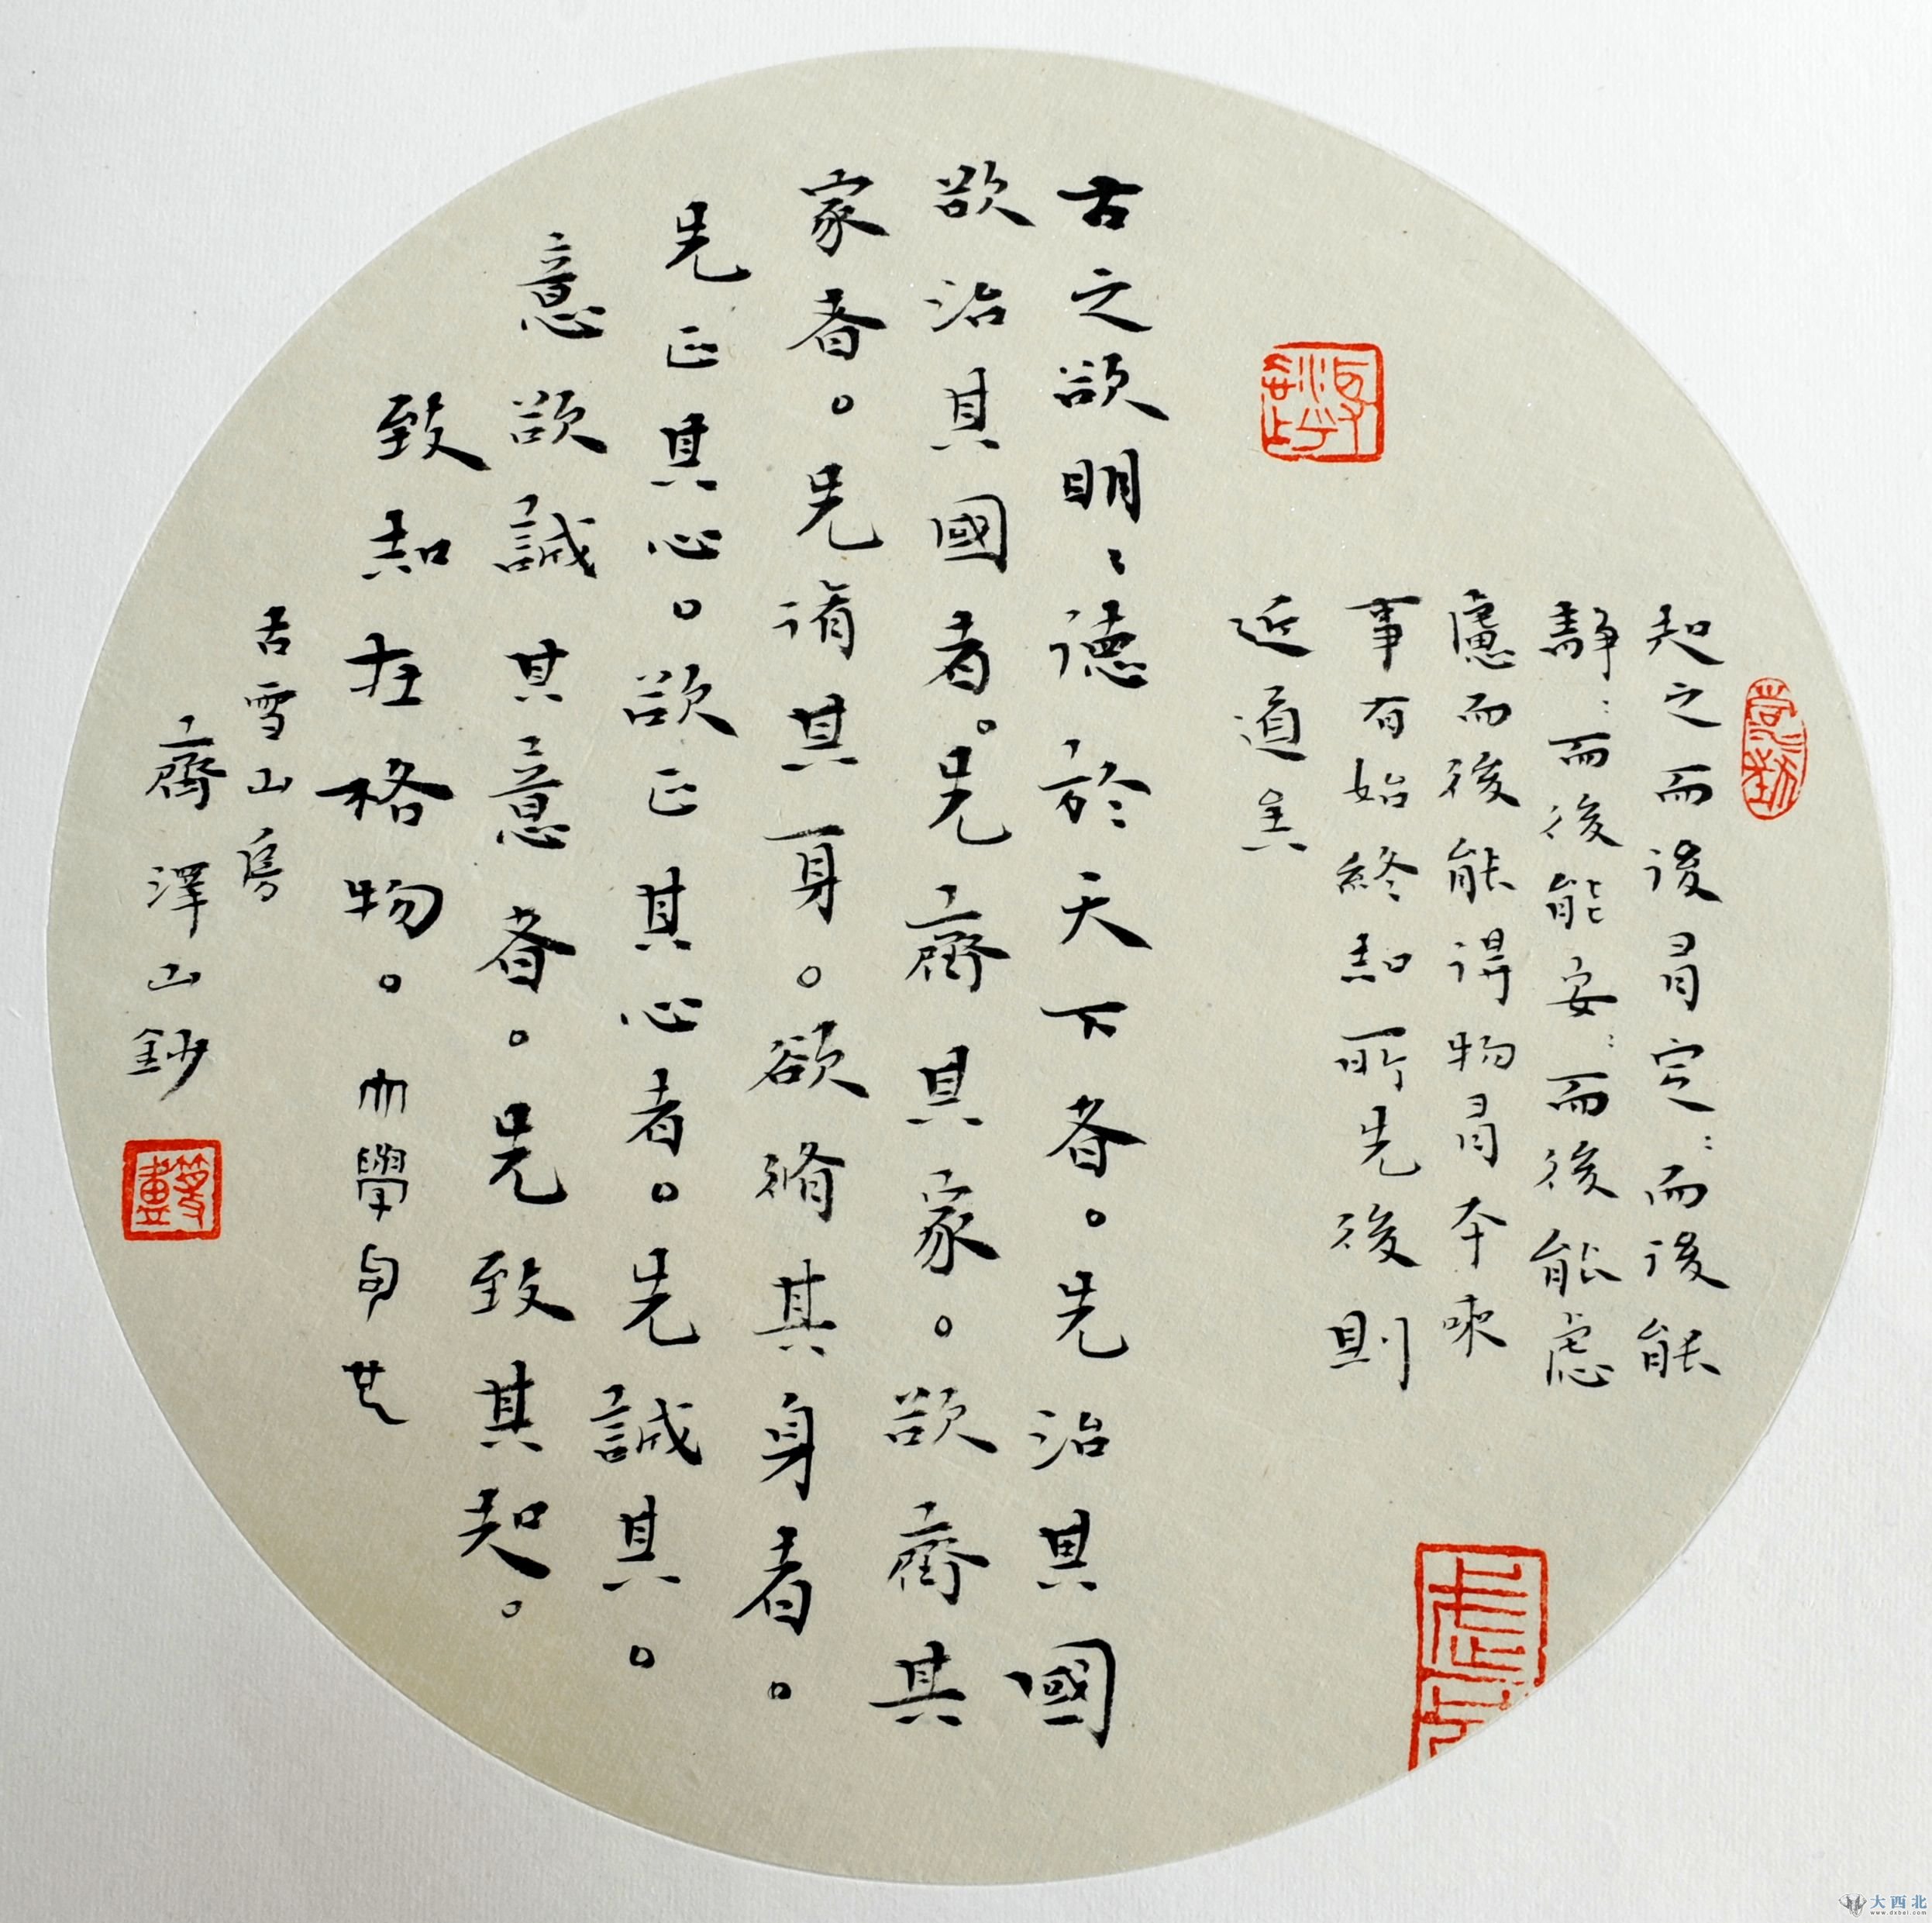 知之而後有定〻而後能
靜〻而後能安〻而後能慮
慮而後能得物有本末
事有始終知所先後則
近道矣
古之欲明〻德於天下者。先治其國
欲治其國者。先齊其家。欲齊其
家者。先脩其身。欲脩其身者。
先正其心。欲正其心者。先誠其。
意欲誠其意者。先致其知。
致知在格物。大學句
古雪山房
齊澤山鈔
大西北
www.dxbei.com